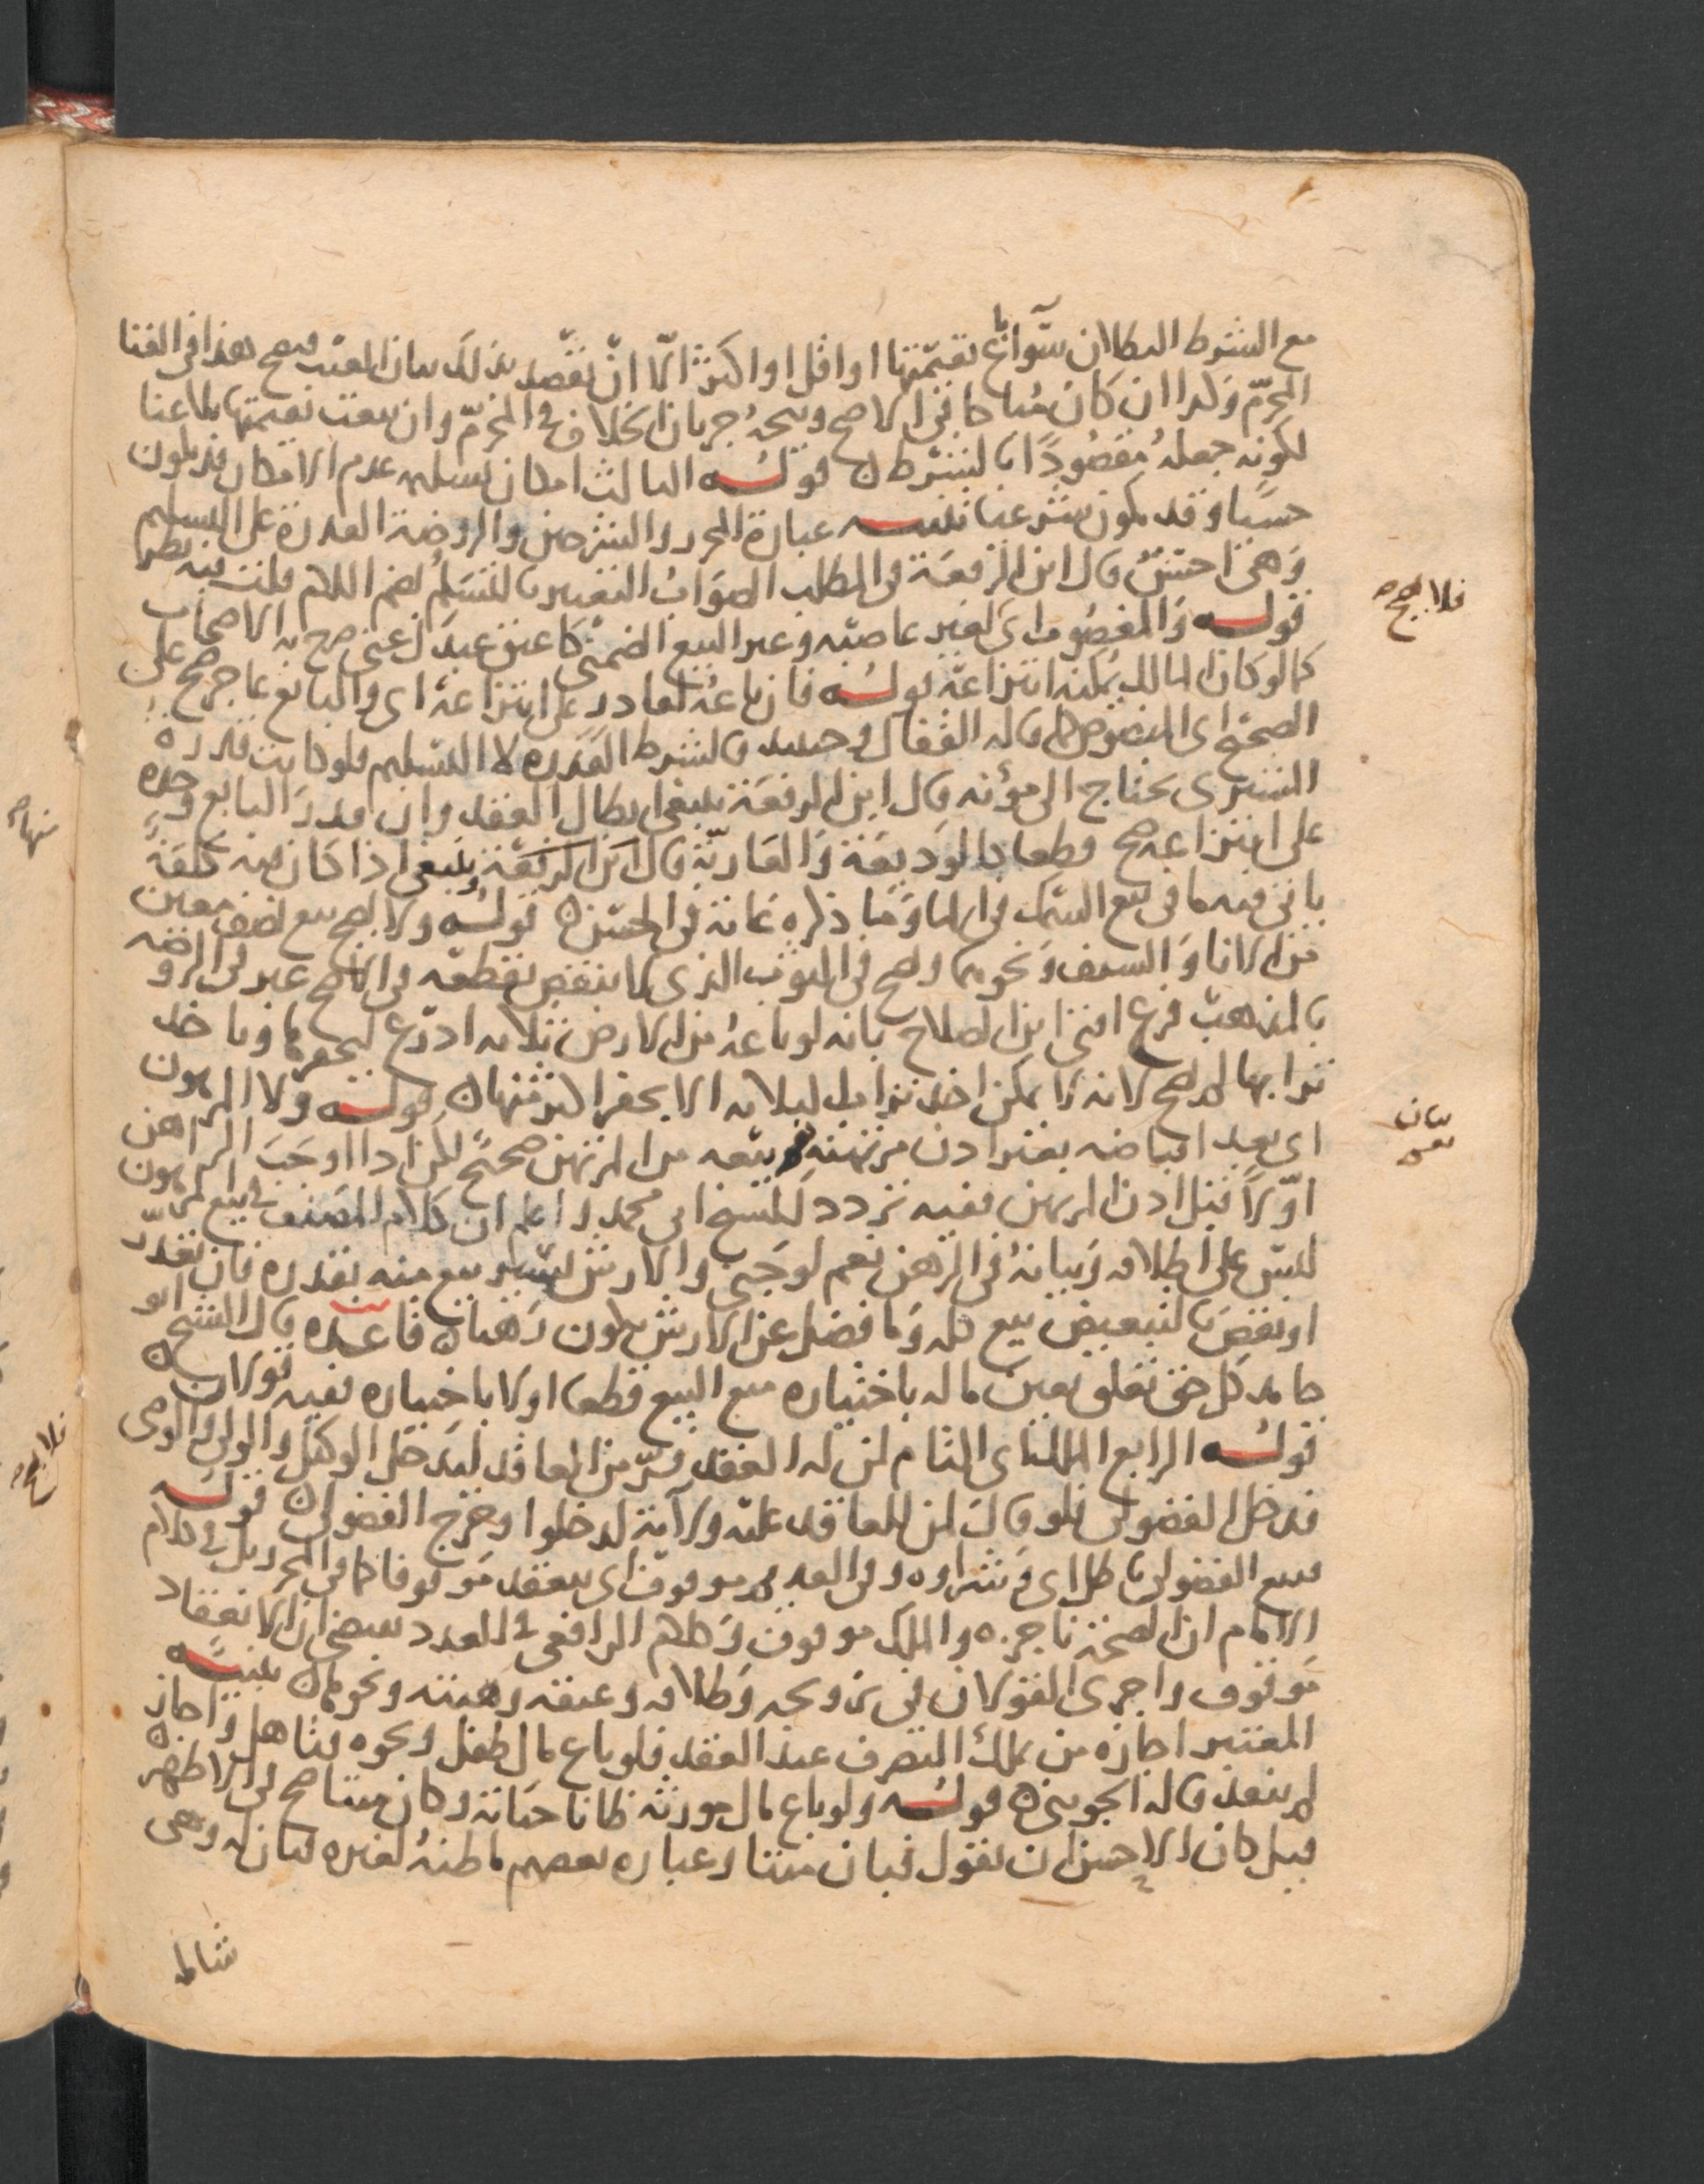 مع الشرط البطلان سوآ باع بقيمتها او اقل او اكثر الا ان يقصد بذلك بيان العيب فيصح هذا في الغنا
المحرم وكذا ان كان مباحا في الاصح ويتجه جريان الخلاف في المحرم وان بيعت بقيمتها بلا غنا
لكونه جعله مقصودا بالشرط قوله الثالث امكان تسليمه عدم الامكان قد يكون
حسيا وقد يكون شرعيا تنبيه عبارة المحرر والشرحين والروضة القدرة على التسليم
وهي احسن قال ابن الرفعة في المطلب الصواب التعبير بالتسلم بضم اللام قلت فيه نظر
قوله والمغصوب اى لغير غاصبه وغير البيع الضمني كاعتق عبدك عني صرح به الاصحاب
كما لو كان المالك يمكنه انتزاعه قوله فان باعه لقادر على انتزاعه اى والبائع عاجز صح على
الصحيح اى المنصوص قاله القفال وحينئذ فالشرط القدرة لا التسليم فلو كانت قدرة
المشترى يحتاج الى مؤنة قال ابن الرفعة ينبغي ابطال العقد وان قدر البائع وحده
على انتزاعه صح قطعا كالوديعة والعارية قال ابن الرفعة وينبغي اذا كان فيه كلفة
ياتي فيه ما في بيع السمك في الما وما ذكره غاية في الحسن قوله ولا يصح بيع نصف معين
من الانا والسيف ونحوهما ويصح في الثوب الذي لا ينقص بقطعه في الاصح عبر في الروضه
بالمذهب فرع افتى ابن الصلاح بانه لو باعه من الارض ثلاثة اذرع ليحفرها وياخذ
ترابها لم يصح لانه لا يمكن اخذ تراب الثلاثه الا بحفر اكثر منها قوله ولا المرهون
اى بعد اقباضه بغير اذن مرتهنه وبيعه من المرتهن صحيح لكن اذا اوجب الراهن
اولا قبل اذن المرتهن ففيه تردد للشيخ ابي محمد واعلم ان كلام المصنف في بيع المرهون
ليس على اطلاقه وبيانه في الرهن نعم لو جنى والارش يسير بيع منه بقدره فان تعذر
او نقص بالتبعيض بيع كله وما فضل عن الارش يكون رهنا قاعدة قال الشيخ ابو
حامد كل حق تعلق بعين ماله باختياره منع البيع قطعا او لا باختياره ففيه قولان
قوله الرابع الملك اى التام لمن له العقد فسر من العاقد ليدخل الوكيل والولي والوصي
فدخل الفضولي فلو قال لمن للعاقد عليه ولاية لدخلوا وخرج الفضولي قوله
فبيع الفضولي باطل اى وشراوه وفي القديم موقوف اى ينعقد موقوفا كما في المحرر بل في كلام
الامام ان الصحة ناجزه والملك موقوف وكلام الرافعي في العدد يقتضي ان الانعقاد
موقوف واجرى القولان في تزويجه وطلاقه وعتقه وهبته ونحوها تنبيه
المعتبر اجازه من يملك التصرف عند العقد فلو باع مال طفل ونحوه فتاهل واجاز
لم ينفذ قاله الجويني قوله ولو باع مال مورثه ظانا حياته وكان ميتا صح في الاظهر
قيل كان الاحسن ان يقول فبان ميتا وعباره بعضهم ما ظنه لغيره فبان له وهي
شاملـ
فلا يصح
بيان